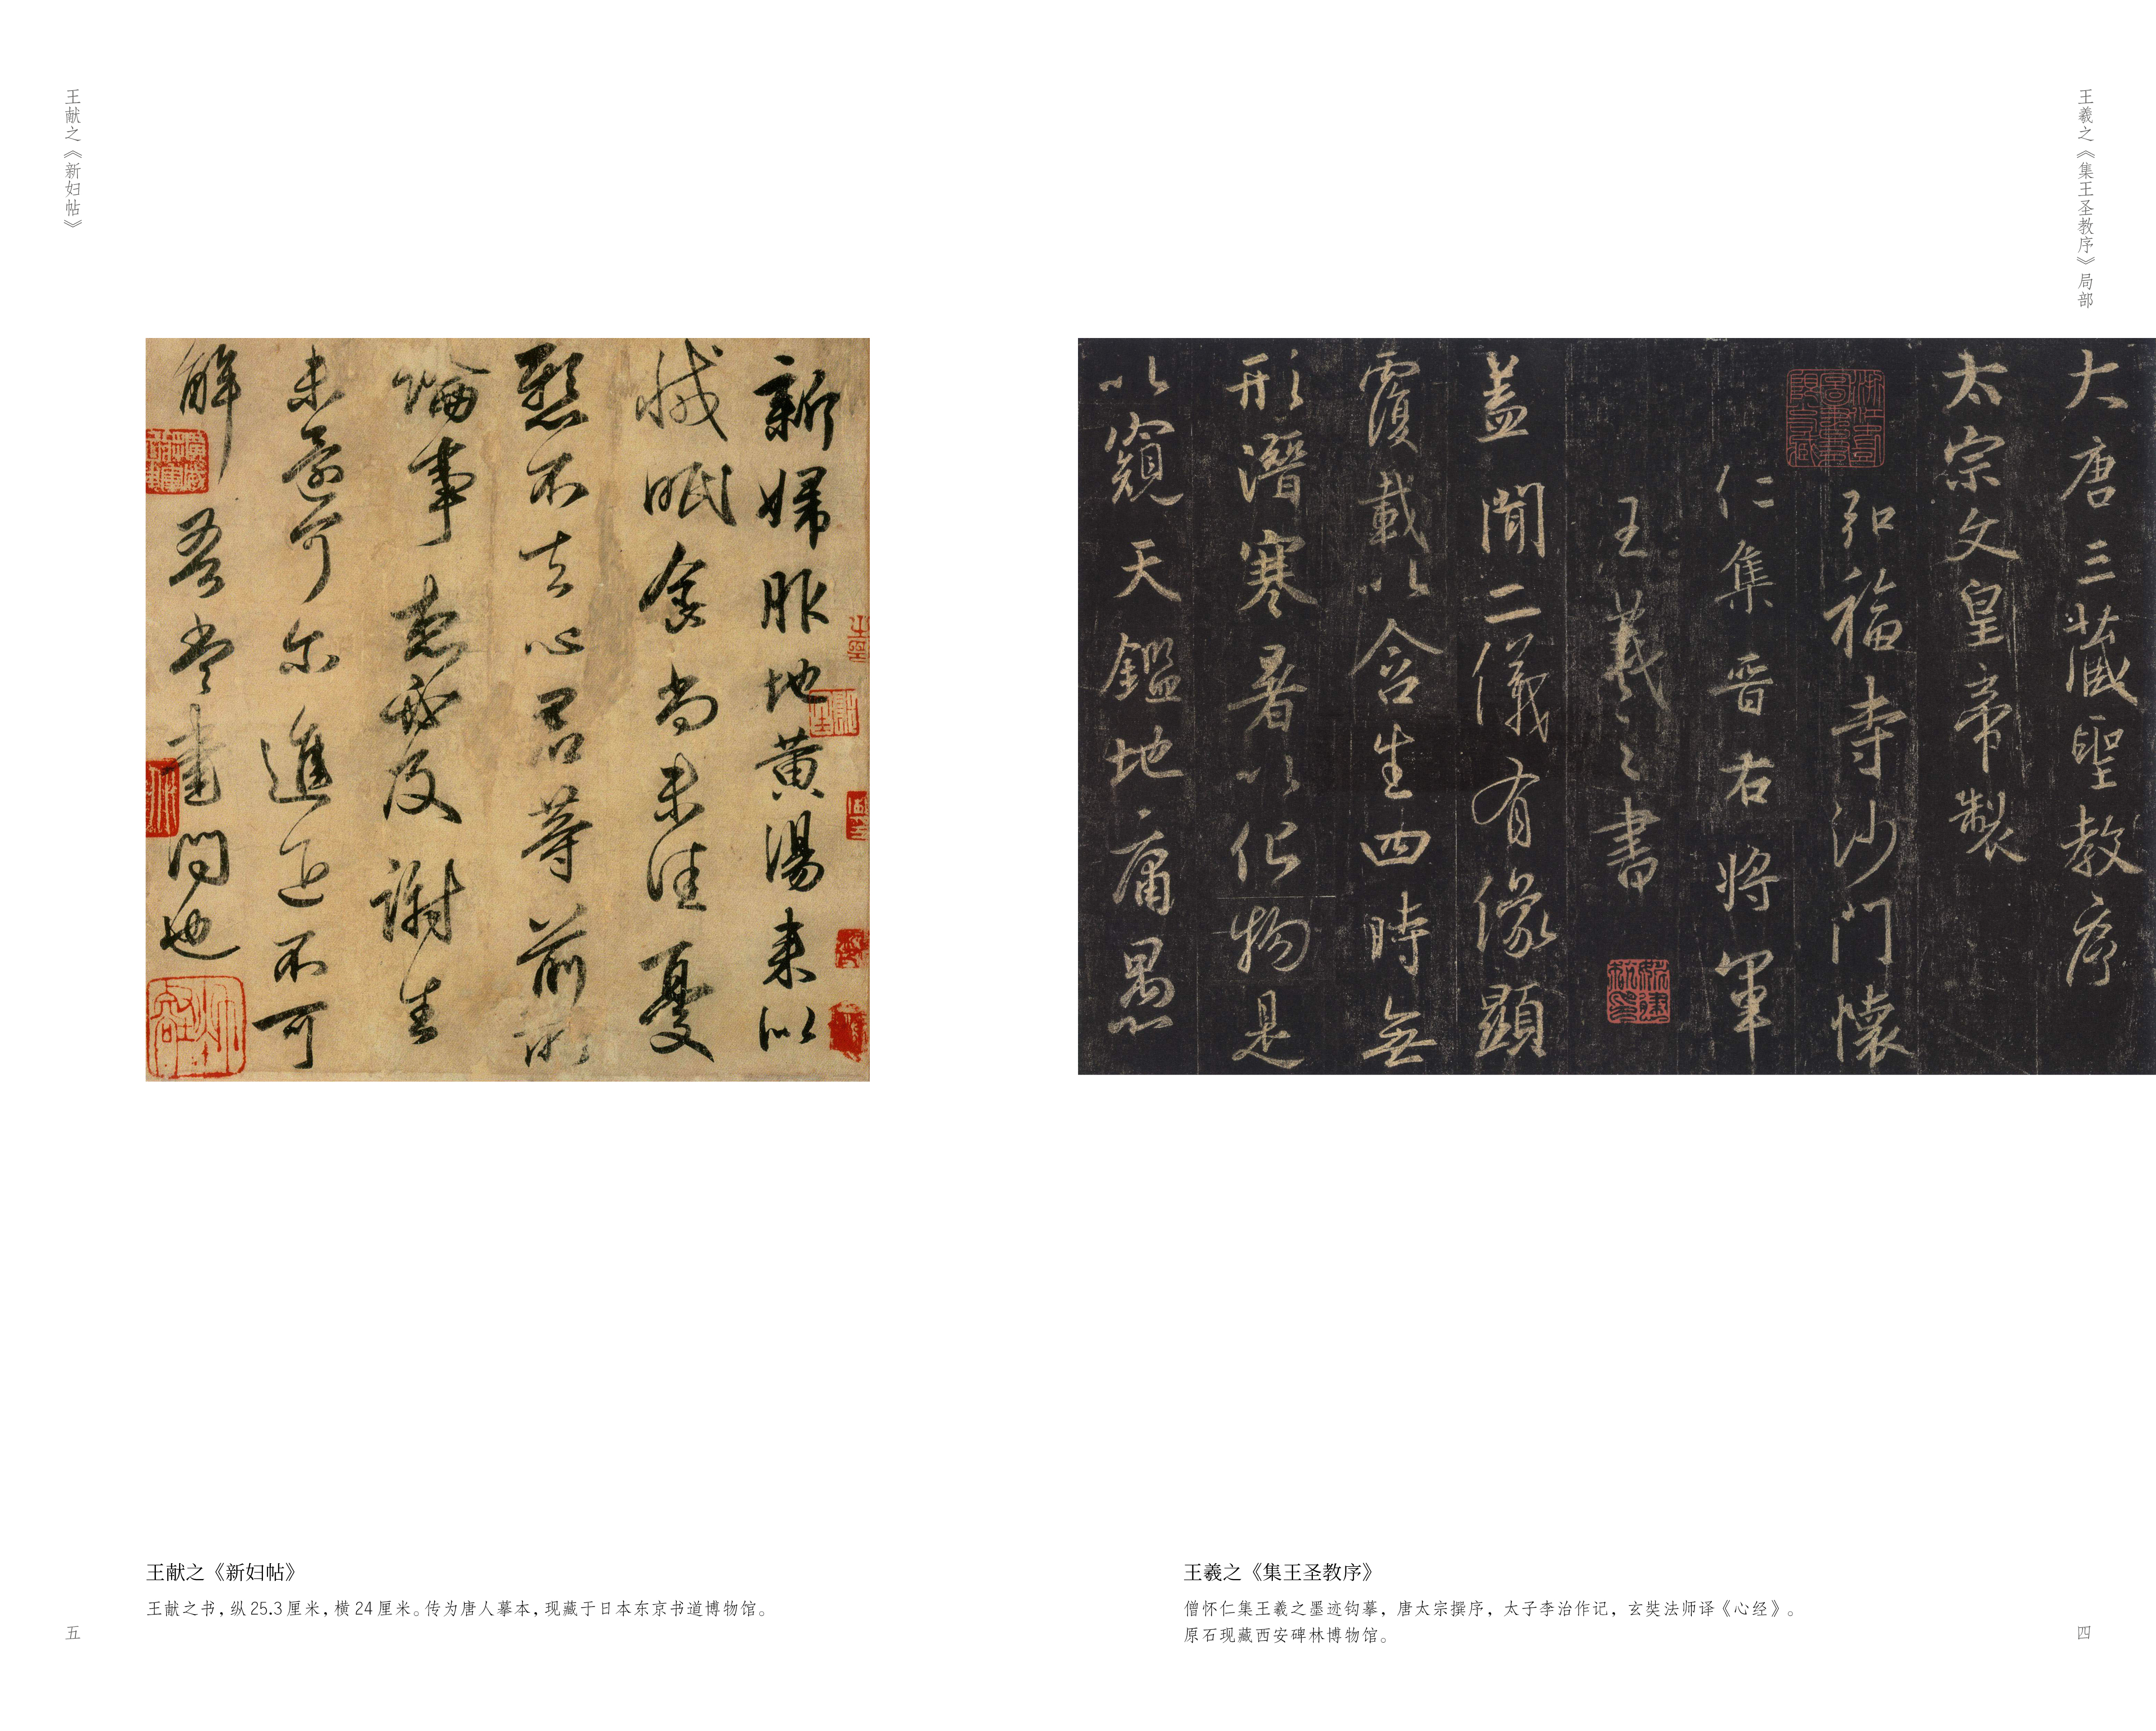 王羲之《集王圣教序》局部
大唐三藏聖教序
太宗文皇帝製
弘福寺沙門懷
仁集晉右將軍
王羲之書
蓋聞二儀有像顯
覆載以含生四時無
形潛寒暑以化物是
以窺天鑑地庸愚
王羲之《集王圣教序》
僧怀仁集王羲之墨迹钩摹，唐太宗撰序，太子李治作记，玄奘法师译《心经》。
原石现藏西安碑林博物馆。
四
王献之《新妇帖》
新婦服地黃湯来似
減眠食尚未佳憂
懸不去心君等前所
論事想必及謝生
未還可尔進退不可
解吾當書問也
王献之《新妇帖》
王献之书，纵25.3厘米，横24厘米。传为唐人摹本，现藏于日本东京书道博物馆。
五